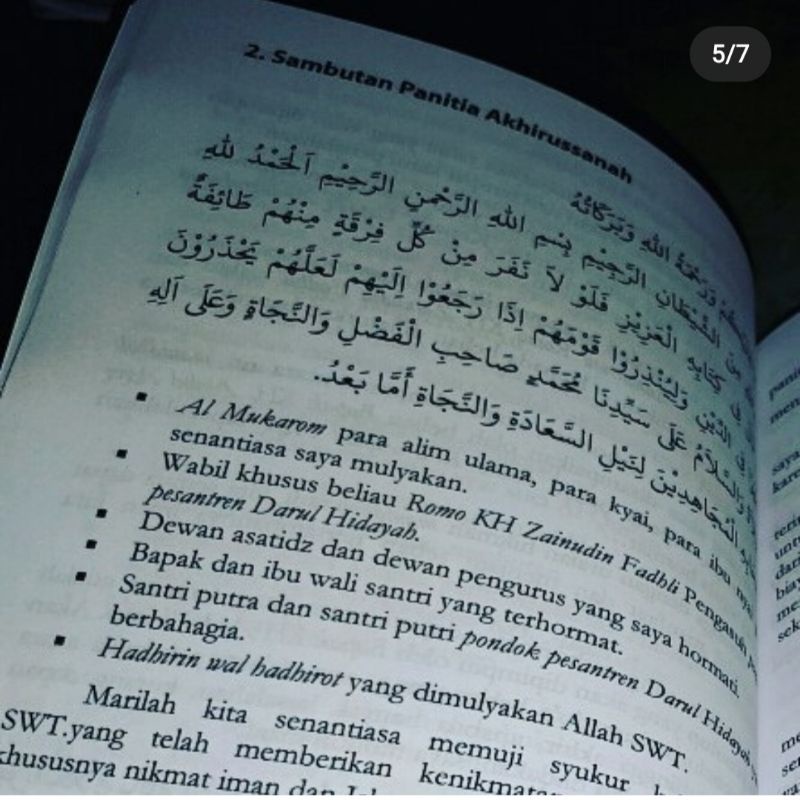 5/7
2. Sambutan Panitia Akhirussanah
وَرَحْمَةُ اللهِ وَبَرَكَاتُهُ
مِنَ الشَّيْطَانِ الرَّجِيْمِ بِسْمِ اللهِ الرَّحْمٰنِ الرَّحِيْمِ اَلْحَمْدُ لِلّٰهِ
فِى كِتَابِهِ الْعَزِيْزِ فَلَوْ لاَ نَفَرَ مِنْ كُلِّ فِرْقَةٍ مِنْهُمْ طَائِفَةٌ
فِى الدِّيْنِ وَلِيُنْذِرُوْا قَوْمَهُمْ اِذَا رَجَعُوْا اِلَيْهِمْ لَعَلَّهُمْ يَحْذَرُوْنَ
وَالسَّلاَمُ عَلَى سَيِّدِنَا مُحَمَّدٍ صَاحِبِ الْفَضْلِ وَالنَّجَاةِ وَعَلَى اَلِهِ
الْمُجَاهِدِيْنَ لِنَيْلِ السَّعَادَةِ وَالنَّجَاةِ أَمَّا بَعْدُ.
▪ Al Mukarom para alim ulama, para kyai, para ibu
senantiasa saya mulyakan.
▪ Wabil khusus beliau Romo KH Zainudin Fadhli Pengasuh
pesantren Darul Hidayah.
▪ Dewan asatidz dan dewan pengurus yang saya hormati.
▪ Bapak dan ibu wali santri yang terhormat.
▪ Santri putra dan santri putri pondok pesantren Darul Hidayah
berbahagia.
▪ Hadhirin wal hadhirot yang dimulyakan Allah SWT.
Marilah kita senantiasa memuji syukur
SWT.yang telah memberikan
khususnya nikmat iman dan